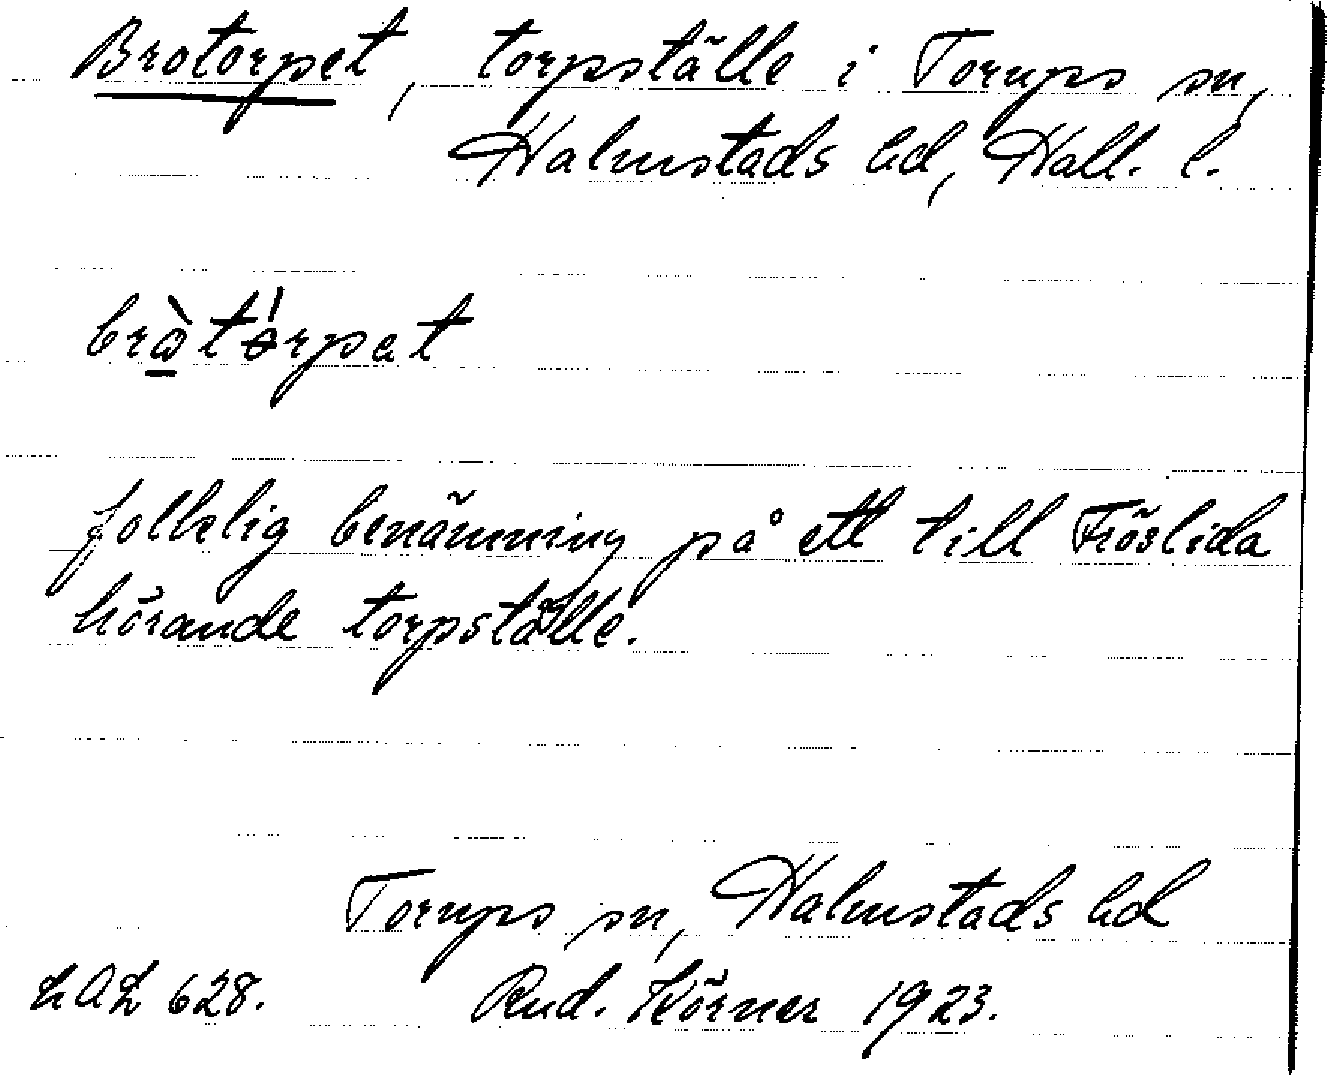 Brotorpet, torpställe i Torups sn,
Halmstads hd, Hall. l.
bròtórpet
folklig benämning på ett till Fröslida
hörande torpställe.
Torups sn, Halmstads hd
LAL 628. Rud. Körner 1923.